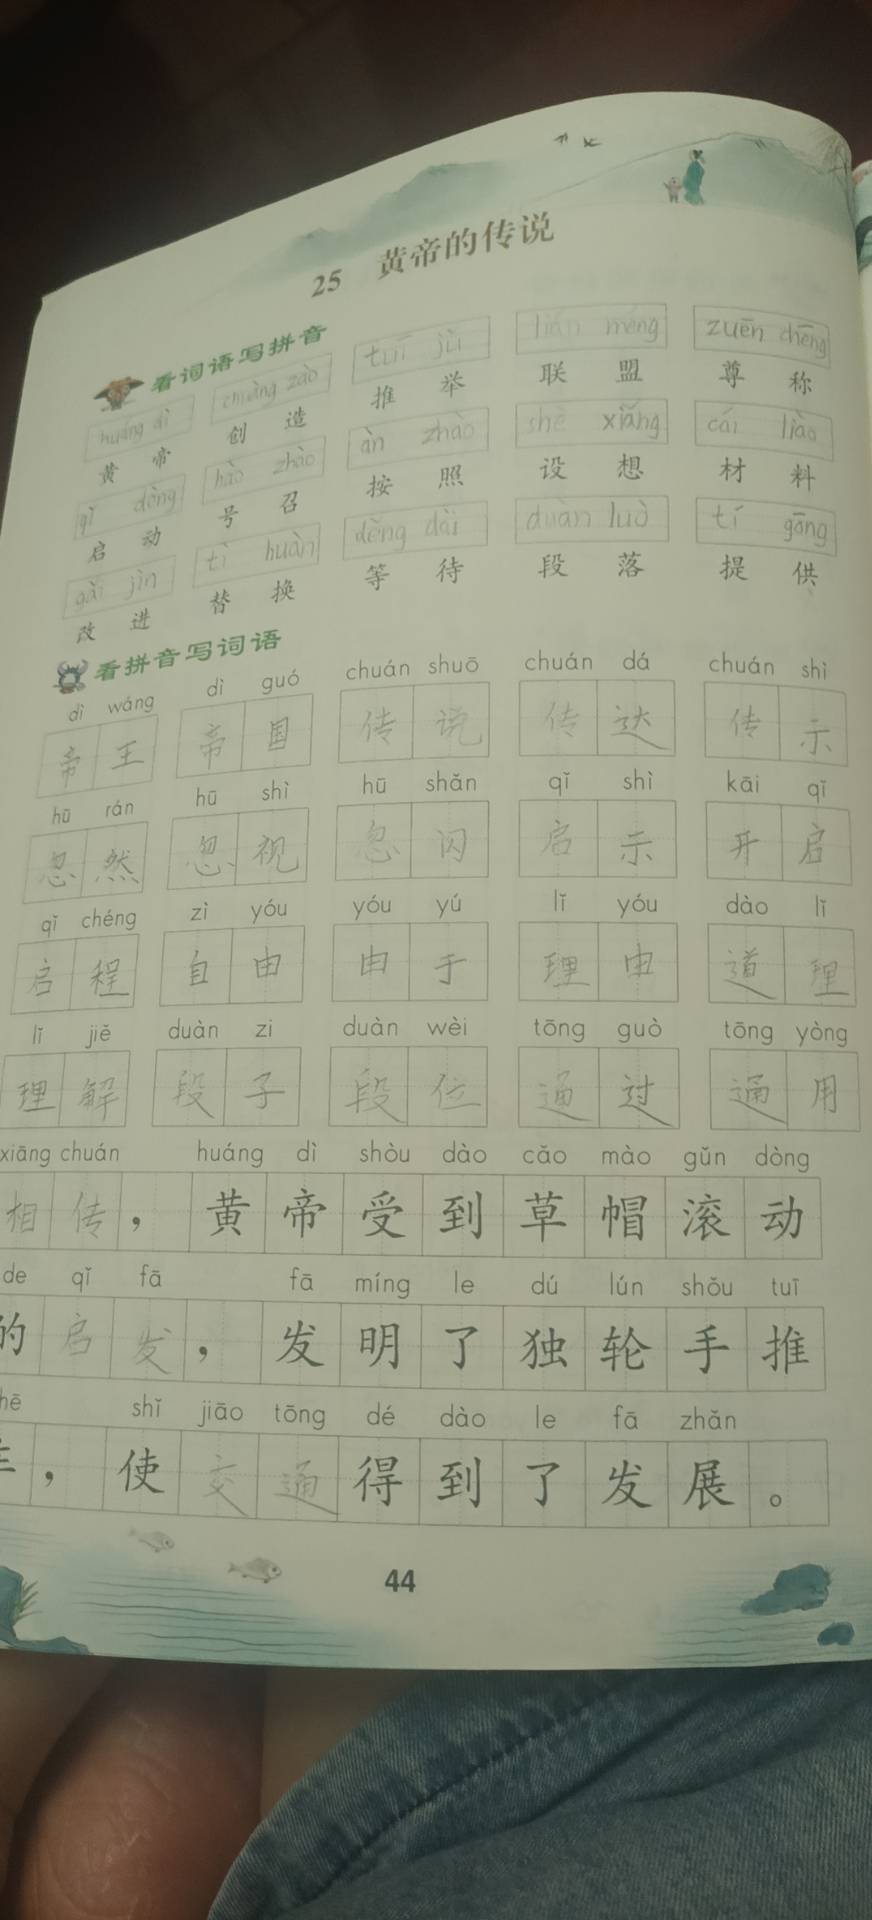 25 黄帝的传说
看词语写拼音
huáng dì chuàng zào tuī jǔ lián méng zuēn chēng
黄帝 创造 推举 联盟 尊称
qǐ dòng hào zhào àn zhào shè xiǎng cái liào
启动 号召 按照 设想 材料
gǎi jìn tì huàn děng dài duàn luò tí gōng
改进 替换 等待 段落 提供
看拼音写词语
dì wáng dì guó chuán shuō chuán dá chuán shì
帝王 帝国 传说 传达 传示
hū rán hū shì hū shǎn qǐ shì kāi qǐ
忽然 忽视 忽闪 启示 开启
qǐ chéng zì yóu yóu yú lǐ yóu dào lǐ
启程 自由 由于 理由 道理
lǐ jiě duàn zi duàn wèi tōng guò tōng yòng
理解 段子 段位 通过 通用
xiāng chuán huáng dì shòu dào cǎo mào gǔn dòng
相传，黄帝受到草帽滚动
de qǐ fā fā míng le dú lún shǒu tuī
的启发，发明了独轮手推
shǐ jiāo tōng dé dào le fā zhǎn
，使交通得到了发展。
44